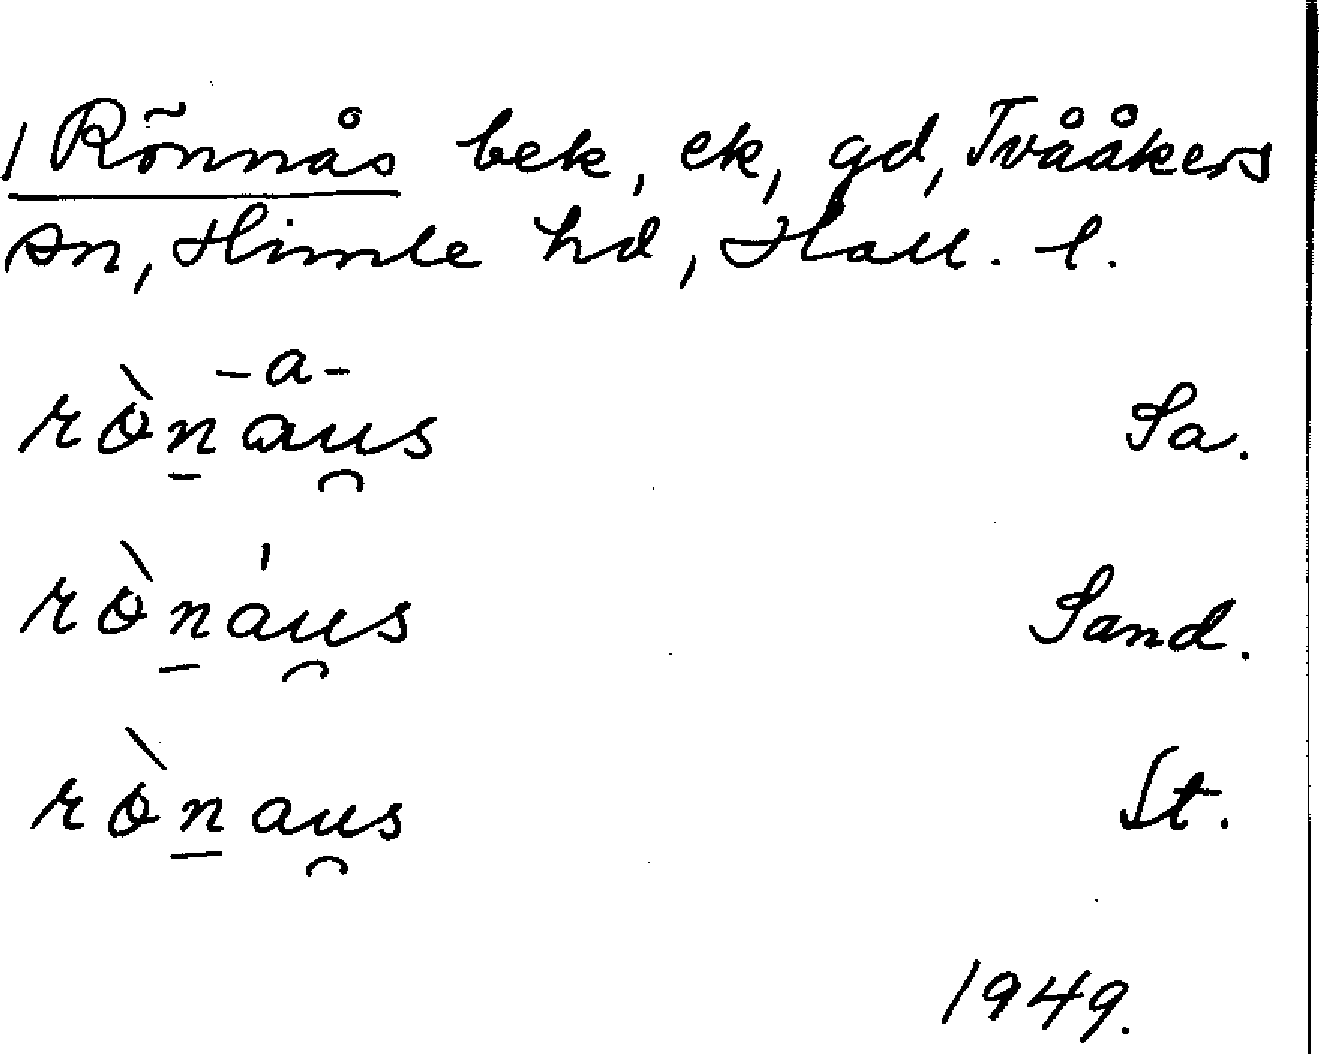 1 Rönnås bek, ek, gd, Tvååkers
sn, Himle hd, Hall. l.
-a-
rò̀n̠au̯s Sa.
rò̀n̠áu̯s Sand.
rò̀n̠au̯s St.
1949.